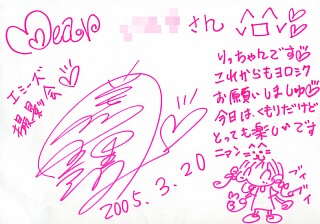 Dear さん
りっちゃんです
これからもヨロシク
お願いしましゅ
今日は、くもりだけど
とっても楽しいです
ニャン
エミーズ
撮影会
2005.3.20
ブイ
ブイ